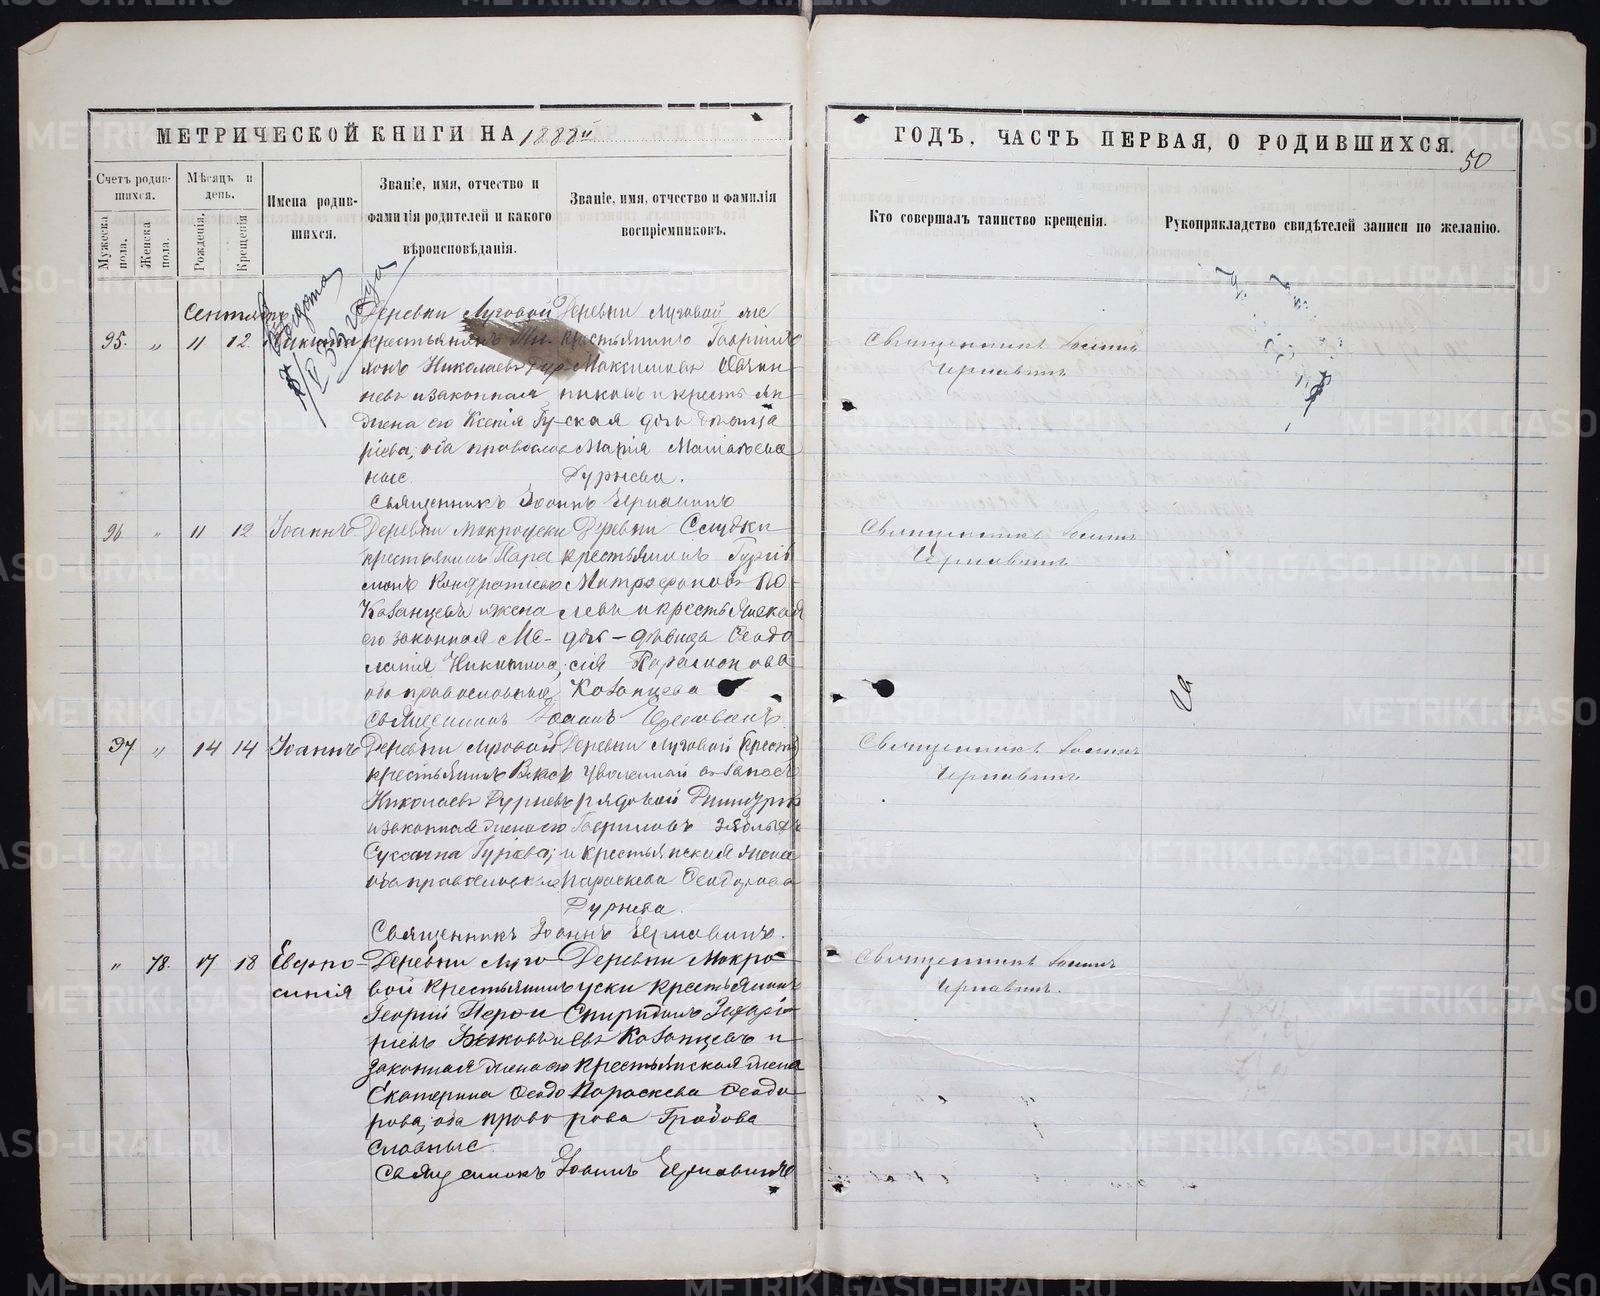 МЕТРИЧЕСКОЙ КНИГИ НА 1888й
ГОДЪ, ЧАСТЬ ПЕРВАЯ, О РОДИВШИХСЯ.
50
Счетъ родившихся.
Мужеска пола.
Женска пола.
Мѣсяцъ и день.
Рожденія.
Крещенія
Имена родившихся.
Званіе, имя, отчество и фамилія родителей и какого вѣроисповѣданія.
Званіе, имя, отчество и фамилія воспріемниковъ.
Кто совершалъ таинство крещенія.
Рукоприкладство свидѣтелей записи по желанію.
Сентябрь
95. " 11 12 Никита
Деревни Луговой
крестьянинъ
Николаевъ Дур-
невъ и законная
жена его Ксенія Гу-
ріева, оба православ-
ные.
Деревни Луговой же
крестьянинъ Гавріилъ
Максимовъ Овчин-
никовъ и крестьян-
ская дочь дѣвица
Марія Матвѣева
Дурнева.
Священникъ Іоаннъ Чернавинъ
Священникъ Іоаннъ
Чернавинъ
96 " 11 12 Іоаннъ
Деревни Мокроуски
крестьянинъ Пара-
монъ Кондратьевъ
Казанцевъ и жена
его законная Ме-
ланія Никитина,
оба православные
Деревни
крестьянинъ
Митрофановъ По-
левъ и крестьянская
дочь - дѣвица Ѳеодо-
сія Парамонова
Казанцева
Священникъ Іоаннъ Чернавинъ
Священникъ Іоаннъ
Чернавинъ
97 " 14 14 Іоаннъ
Деревни Луговой
крестьянинъ
Николаевъ Дурневъ
и законная жена его
Сусанна Гуріева;
оба православные
Деревни Луговой
уволенный въ запасъ
рядовой Димитрій
Гавриловъ
и крестьянская жена
Параскева Ѳеодорова
Дурнева.
Священникъ Іоаннъ Чернавинъ.
Священникъ Іоаннъ
Чернавинъ
" 78. 17 18 Евфро-
синія
Деревни Луго-
вой крестьянинъ
Георгій
Быковъ и
законная жена его
Екатерина Ѳеодо-
рова; оба право-
славные.
Деревни Мокро-
уски крестьянинъ
Спиридонъ Захарі-
евъ Казанцевъ и
крестьянская жена
Параскева Ѳеодо-
рова
Священникъ Іоаннъ Чернавинъ
Священникъ Іоаннъ
Чернавинъ.
METRIKI.GASO-URAL.RU